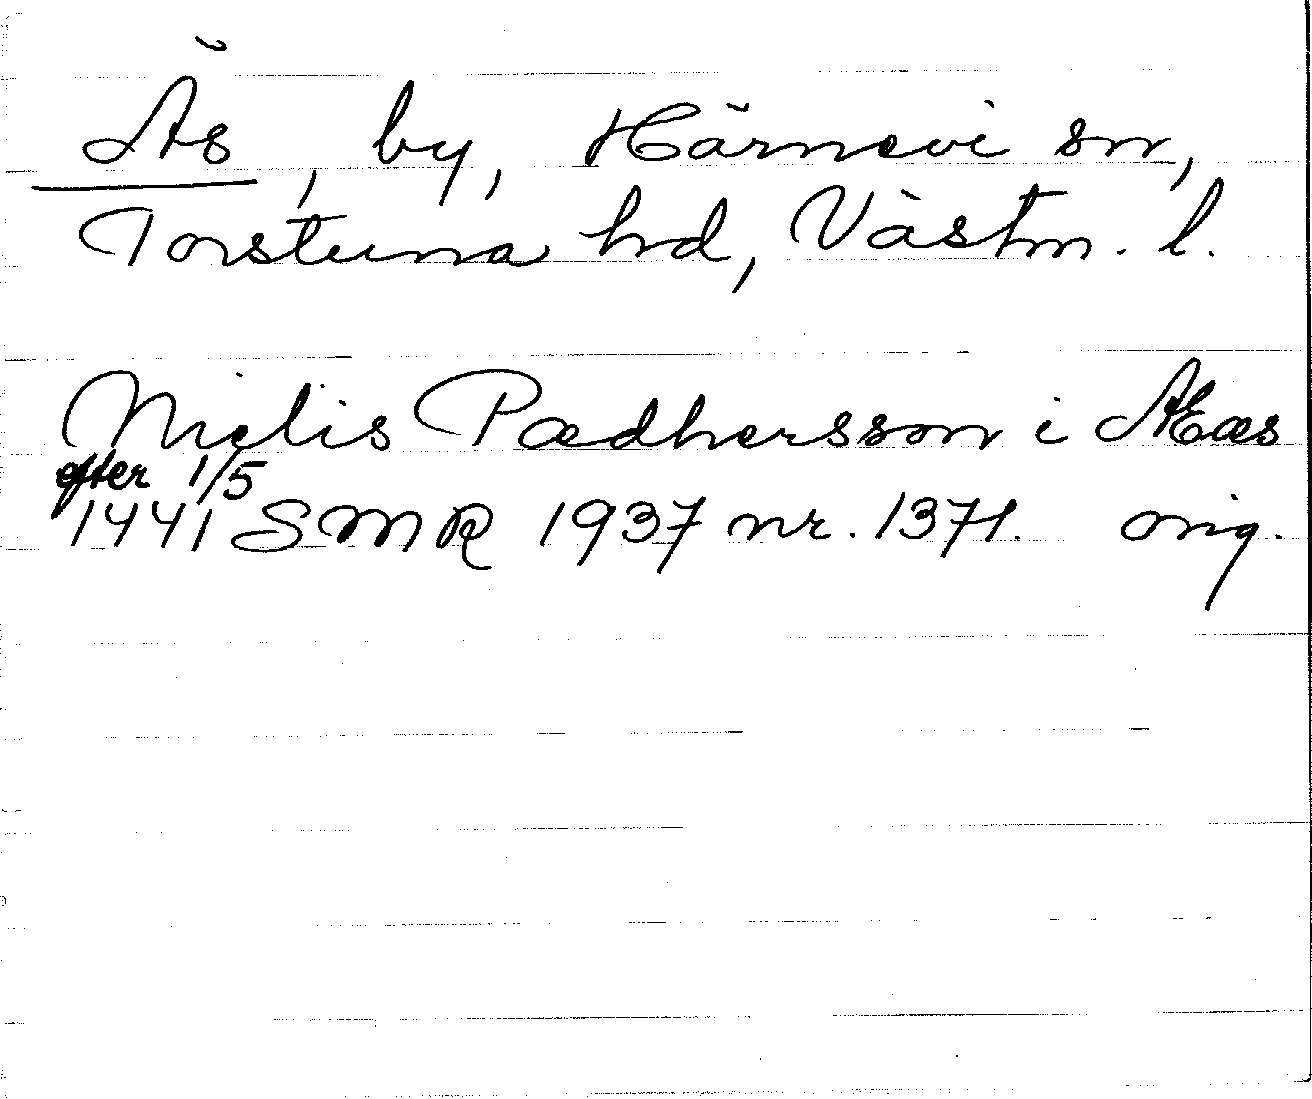 Äs, by, Härnevi sn,
Torstuna hd, Västm. l.
Nielis Pædhersson i Ææs
efter 1/5
1441 SMR 1937 nr. 1371. orig.